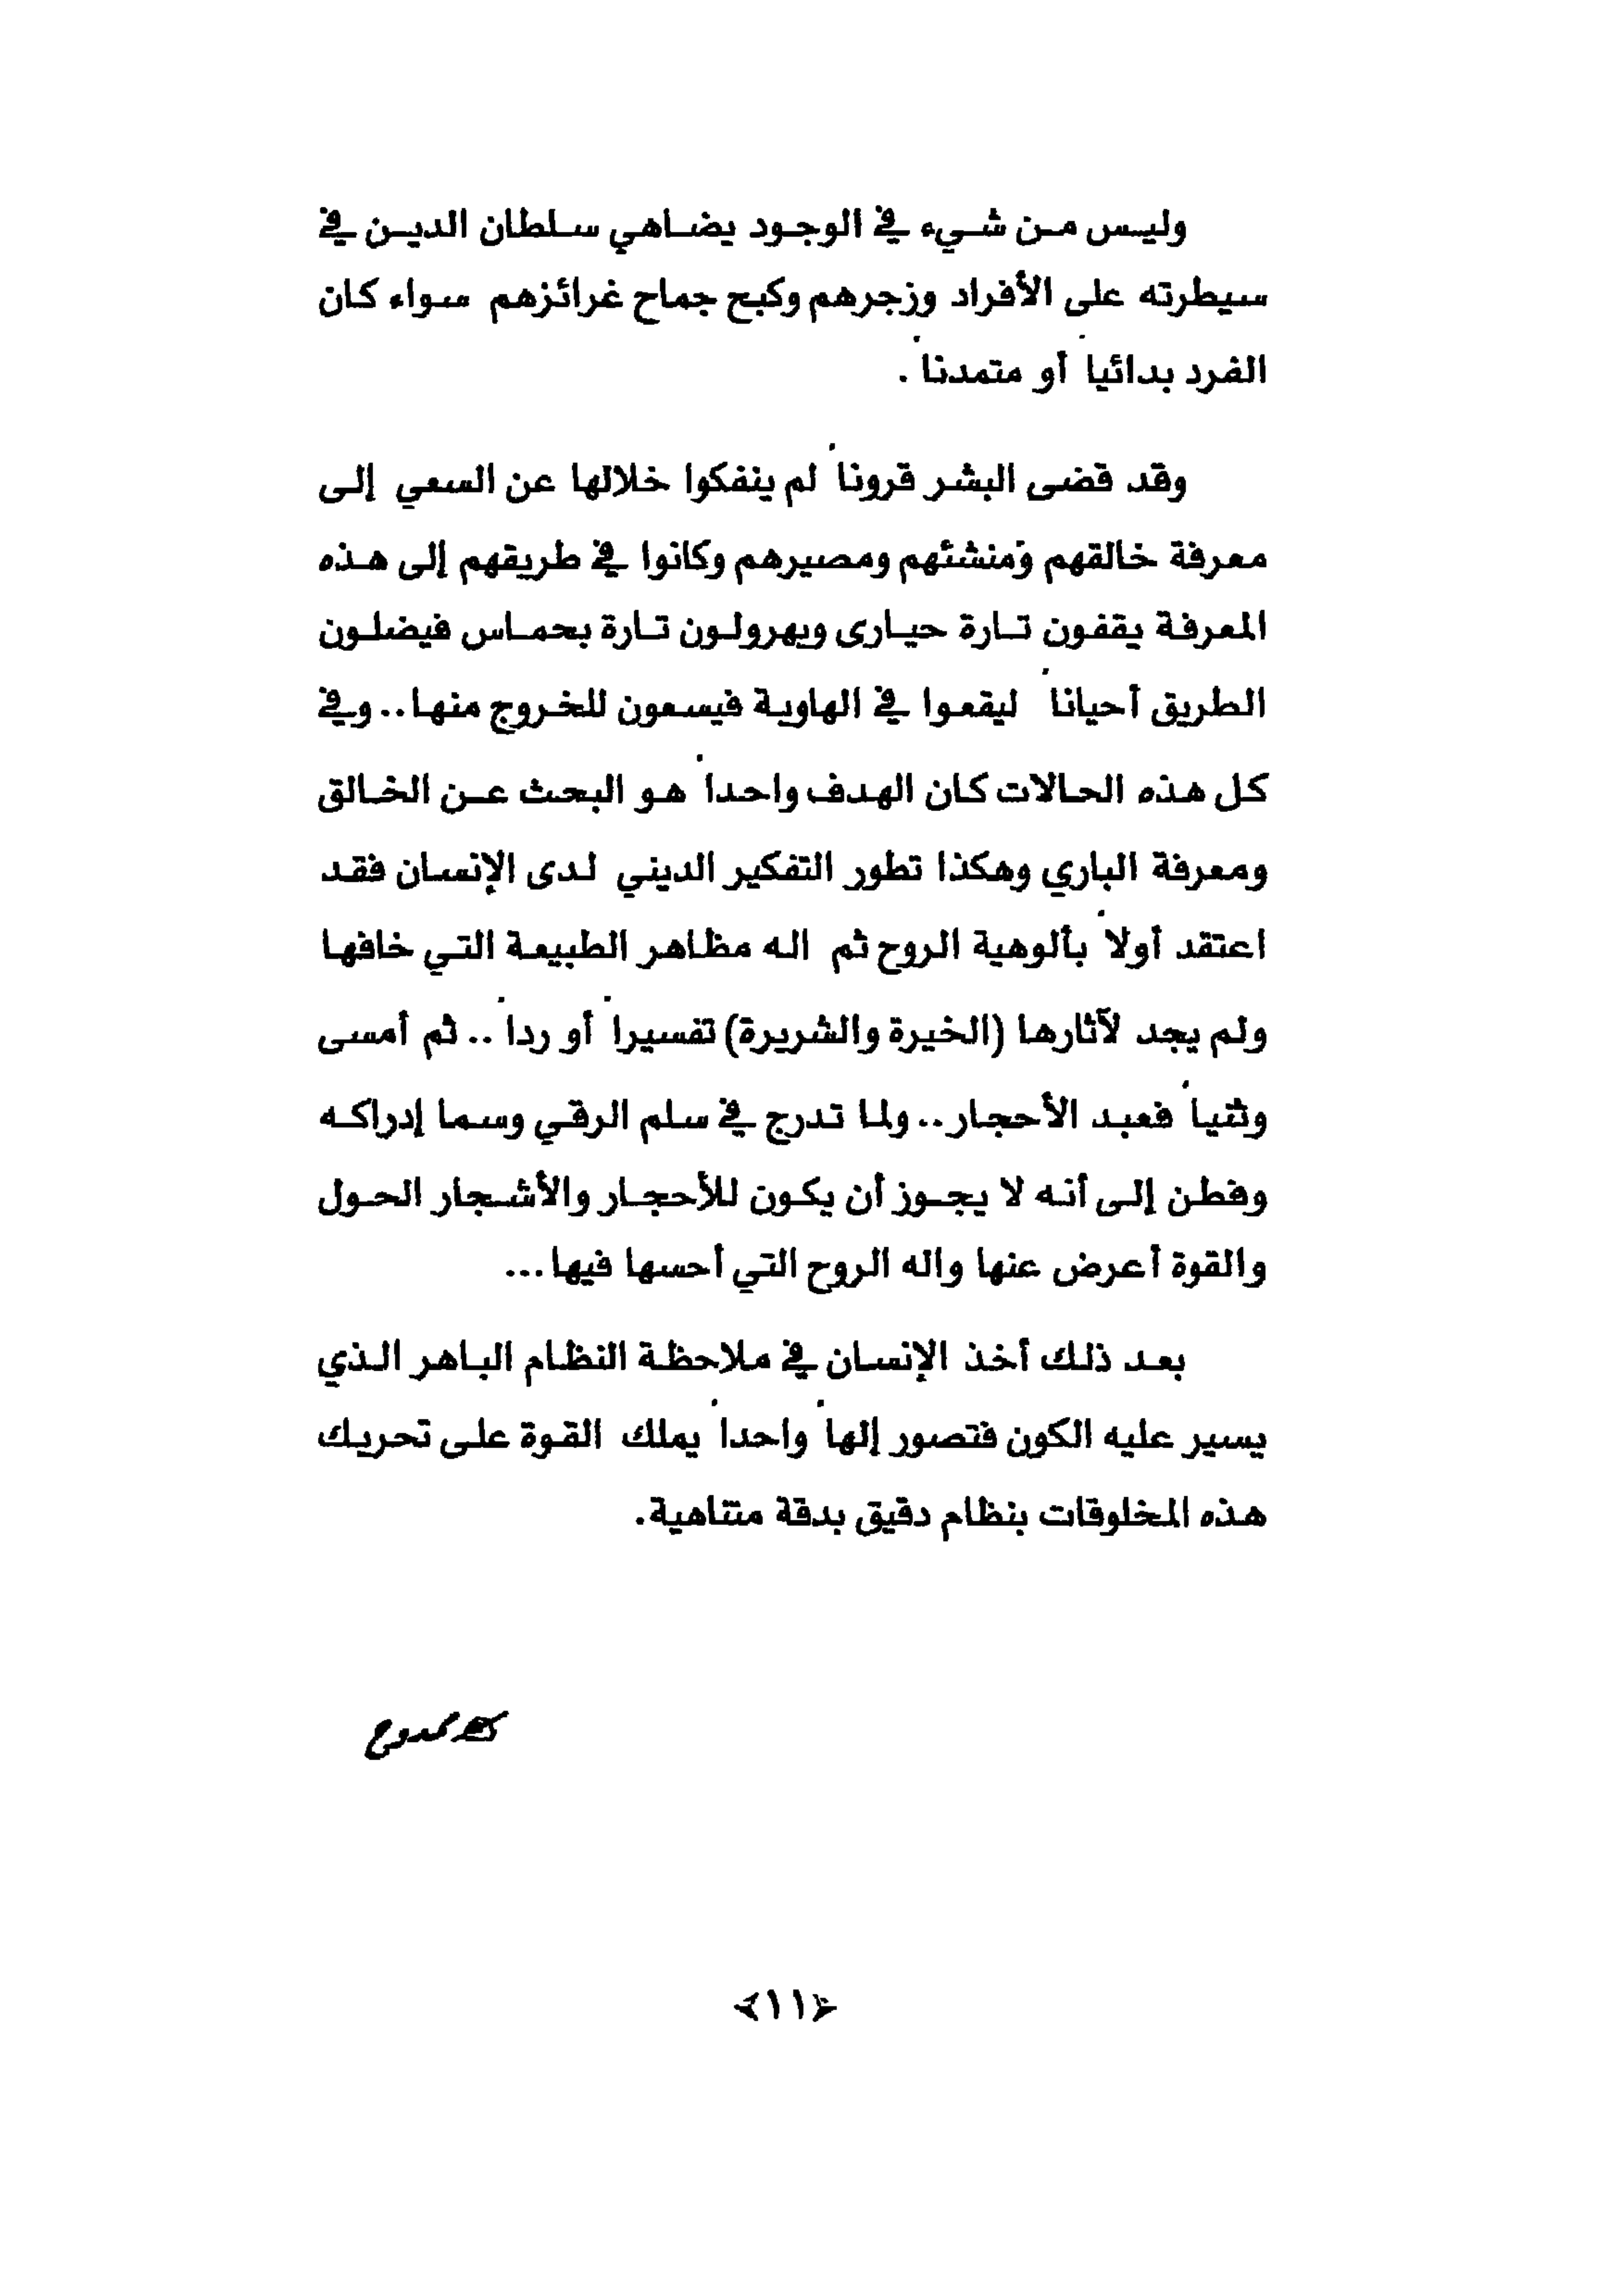 وليس من شيء في الوجود يضاهي سلطان الدين في
سيطرته على الأفراد وزجرهم وكبح جماح غرائزهم سواء كان
الفرد بدائياً أو متمدناً .
وقد قضى البشر قروناً لم ينفكوا خلالها عن السعي إلى
معرفة خالقهم ومنشئهم ومصيرهم وكانوا في طريقهم إلى هذه
المعرفة يقفون تارة حيارى ويهرولون تارة بحماس فيضلون
الطريق أحياناً ليقعوا في الهاوية فيسعون للخروج منها.. وفي
كل هذه الحالات كان الهدف واحداً هو البحث عن الخالق
ومعرفة الباري وهكذا تطور التفكير الديني لدى الإنسان فقد
اعتقد أولاً بألوهية الروح ثم اله مظاهر الطبيعة التي خافها
ولم يجد لآثارها (الخيرة والشريرة) تفسيراً أو رداً .. ثم أمسى
وثنياً فعبد الأحجار.. ولما تدرج في سلم الرقي وسما إدراكه
وفطن إلى أنه لا يجوز أن يكون للأحجار والأشجار الحول
والقوة أعرض عنها واله الروح التي أحسها فيها...
بعد ذلك أخذ الإنسان في ملاحظة النظام الباهر الذي
يسير عليه الكون فتصور إلهاً واحداً يملك القوة على تحريك
هذه المخلوقات بنظام دقيق بدقة متناهية.
ممدوح
١١